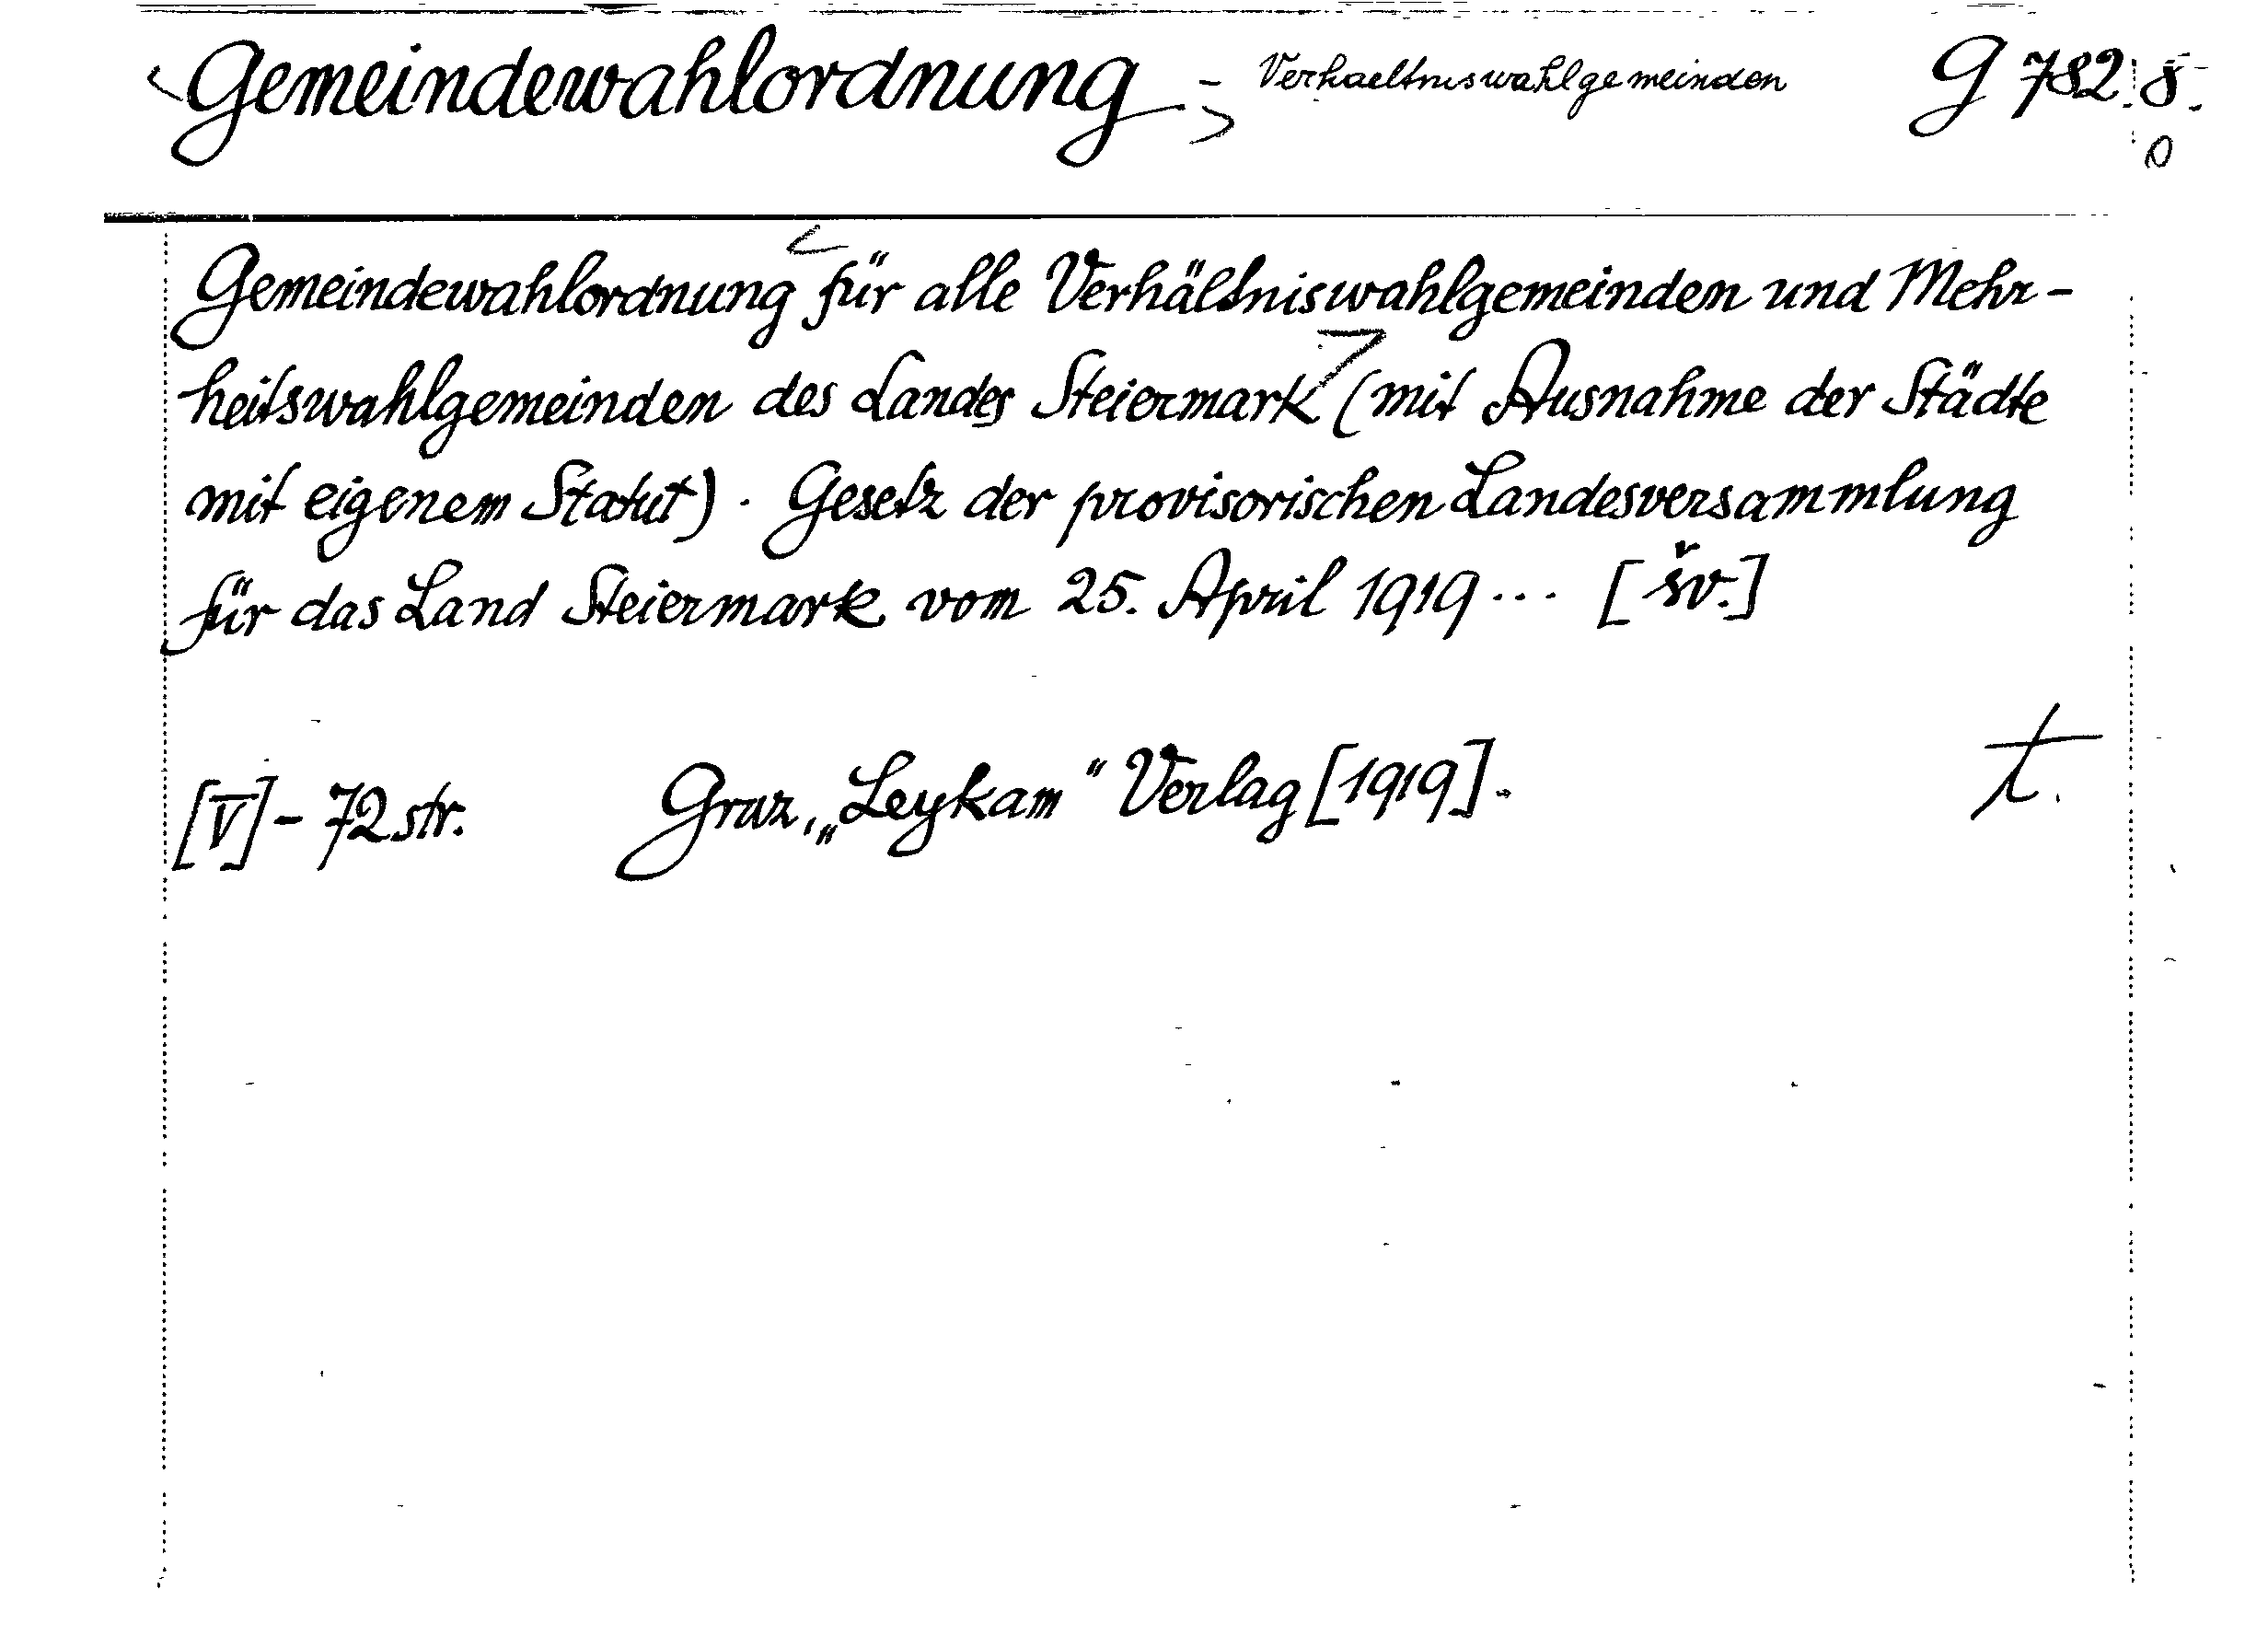 Gemeindewahlordnung - Verhaeltniswahlgemeinden G 782.8.
0
Gemeindewahlordnung für alle Verhältniswahlgemeinden und Mehr-
heitswahlgemeinden des Landes Steiermark (mit Ausnahme der Städte
mit eigenem Statut). Gesetz der provisorischen Landesversammlung
für das Land Steiermark vom 25. April 1919 ... [šv.]
[V] - 72 str. Graz, „Leykam“ Verlag [1919].
t.